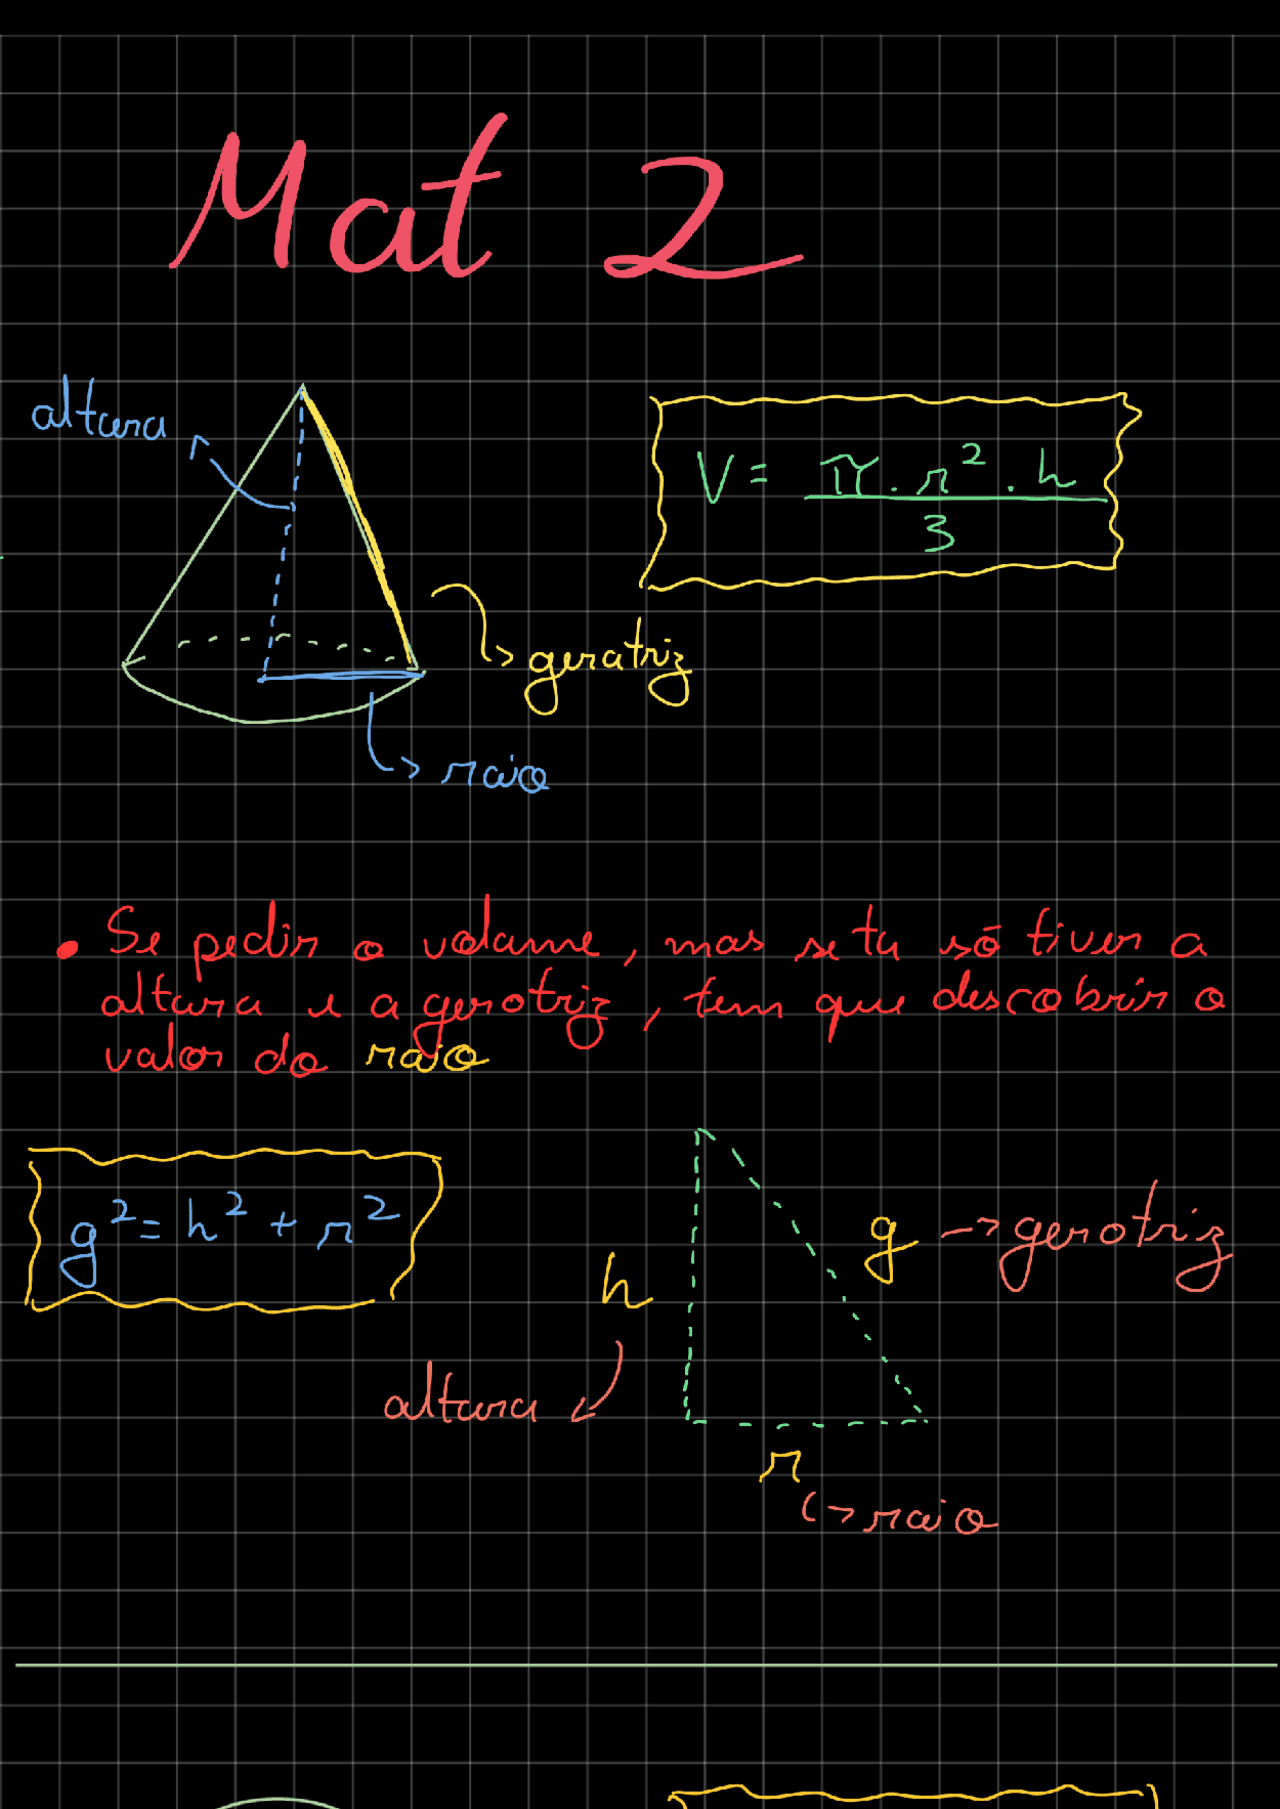 Mat 2
altura
V = π . r² . h / 3
geratriz
raio
• Se pedir o volume, mas se tu só tiver a
altura e a gerotriz, tem que descobrir o
valor do raio
g² = h² + r²
g -> gerotriz
h
altura
r
-> raio